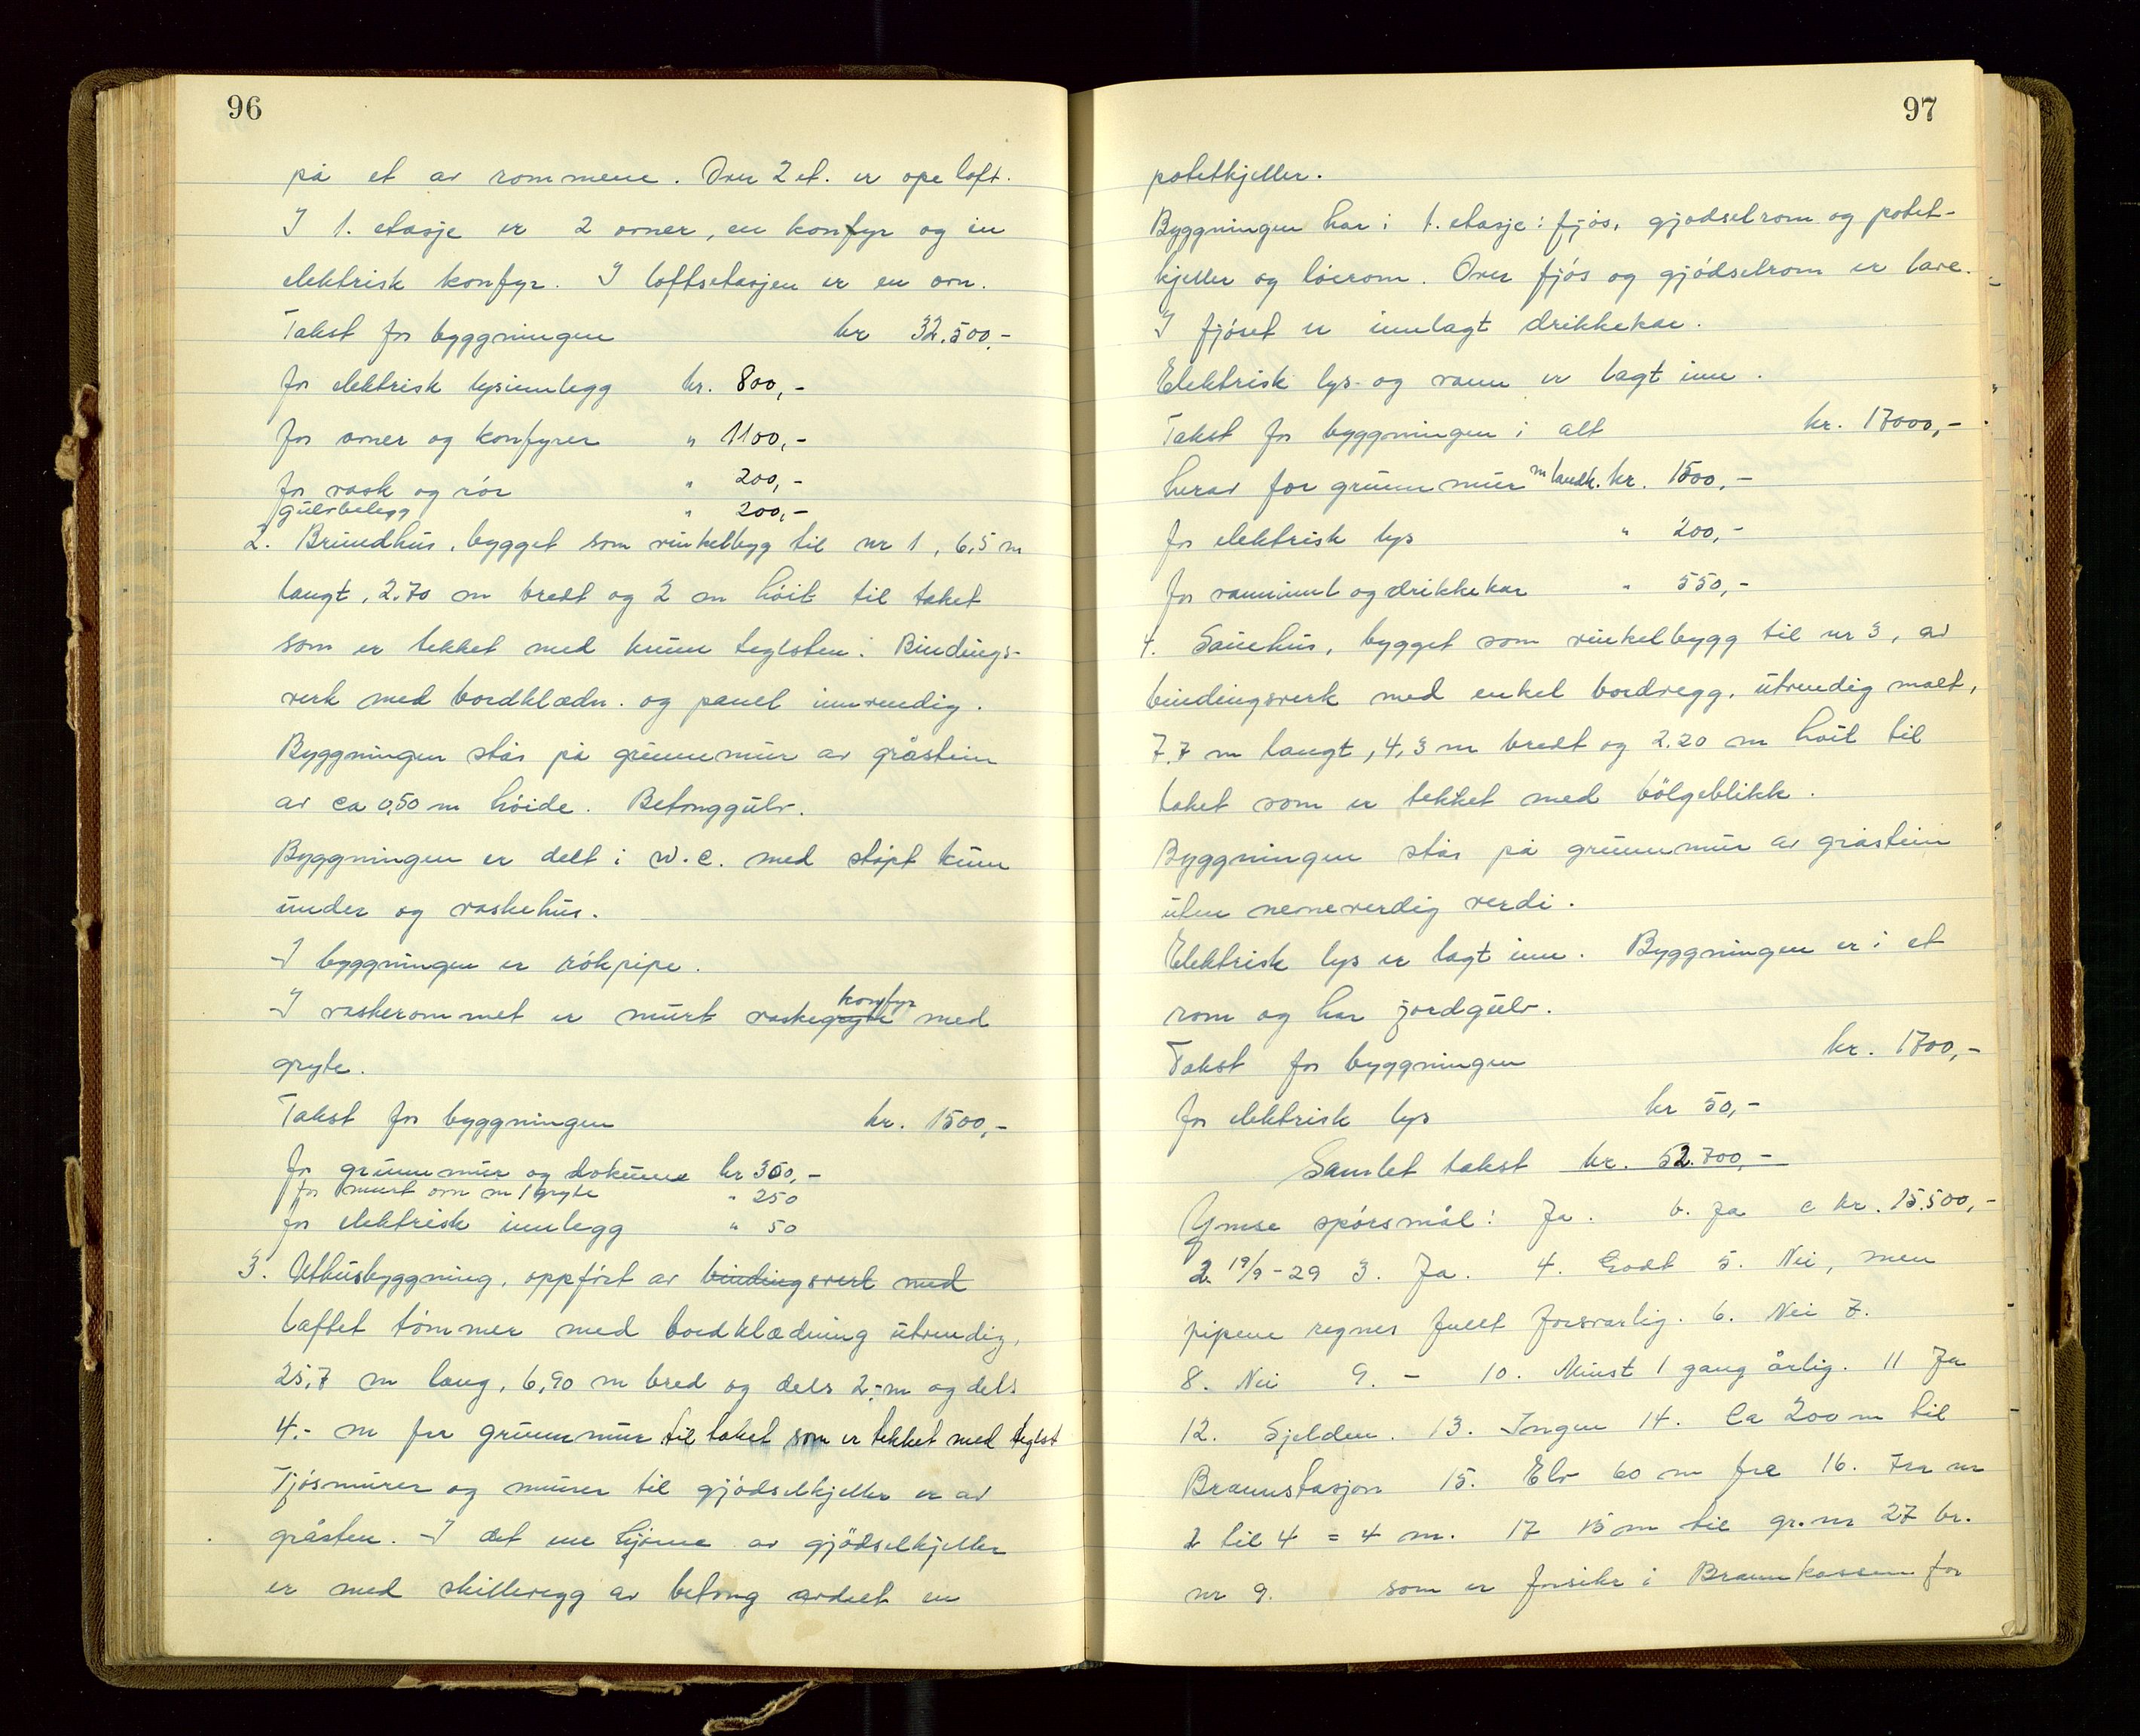 96
på et av rommene. Over 2 et. er ope loft.
I 1. etasje er 2 ovner, en komfyr og en
elektrisk komfyr. I loftsetasjen er en ovn.
Takst for byggningen kr 32.500,-
for elektrisk lysinnlegg kr. 800,-
for ovner og komfyrer " 1100,-
for vask og rör " 200,-
gulvbelegg " 200,-
2. Brendhus, bygget som vinkelbyg til nr 1, 6,5 m
langt, 2.70 m bredt og 2 m höit til taket
som er tekket med krum teglsten. Bindings-
verk med bordklædn. og panel innvendig.
Byggningen står på grunnmur av gråstein
av ca 0,50 m höide. Betonggulv.
Byggningen er delt i W.C. med stöpt kum
under og vaskehus.
I byggningen er rökpipe.
I vaskerommet er murt vaskegryte komfyr med
gryte.
Takst for byggningen kr. 1500,-
for grunnmur og dokumme kr 350,-
for murt ovn m/gryte " 250
for elektrisk innlegg " 50
3. Uthusbyggning, oppfört av bindingsverk med
laftet tömmer med bordklædning utvendig,
25,7 m lang, 6,90 m bred og dels 2,- m og dels
4.- m fra grunnmur til taket som er tekket med teglst
Fjösmurer og murer til gjödselkjeller er av
gråsten. I det ene hjörne av gjödselkjeller
er med skillevegg av betong avdelt en
97
potetkjeller.
Byggningen har i 1. etasje: fjös, gjödselrom og potet-
kjeller og löerom. Over fjös og gjödselrom er lave.
I fjöset er innlagt drikkekar.
Elektrisk lys og vann er lagt inn.
Takst for byggningen i alt kr. 17000,-
herav for grunnmur m landk. kr. 1500,-
for elektrisk lys " 200,-
for vanninnl og drikkekar " 550,-
4. Sauehus, bygget som vinkelbygg til nr 3, av
bindingsverk med enkel bordvegg, utvendig malt,
7,7 m langt, 4,3 m bredt og 2.20 m höit til
taket som er tekket med bölgeblikk.
Byggningen står på grunnmur av gråstein
uten nemneverdig verdi.
Elektrisk lys er lagt inn. Byggningen er i et
rom og har jordgulv.
Takst for byggningen kr. 1700,-
for elektrisk lys kr 50,-
Samlet takst kr. 52.700,-
Ymse spörsmål: Ja. b. Ja c kr. 15.500,-
2. 19/9-29 3. Ja. 4. Godt 5. Nei, men
pipene regnes fullt forsvarlig. 6. Nei 7.
8. Nei 9. - 10. Minst 1 gang årlig. 11 Ja
12. Sjelden. 13. Ingen 14. Ca 200 m til
Brannstasjon 15. Elv 60 m fra 16. Fra nr
2 til 4 = 4 m. 17 15 m til gr.nr 27 br.
nr 9. som er forsikr i Brannkassen for